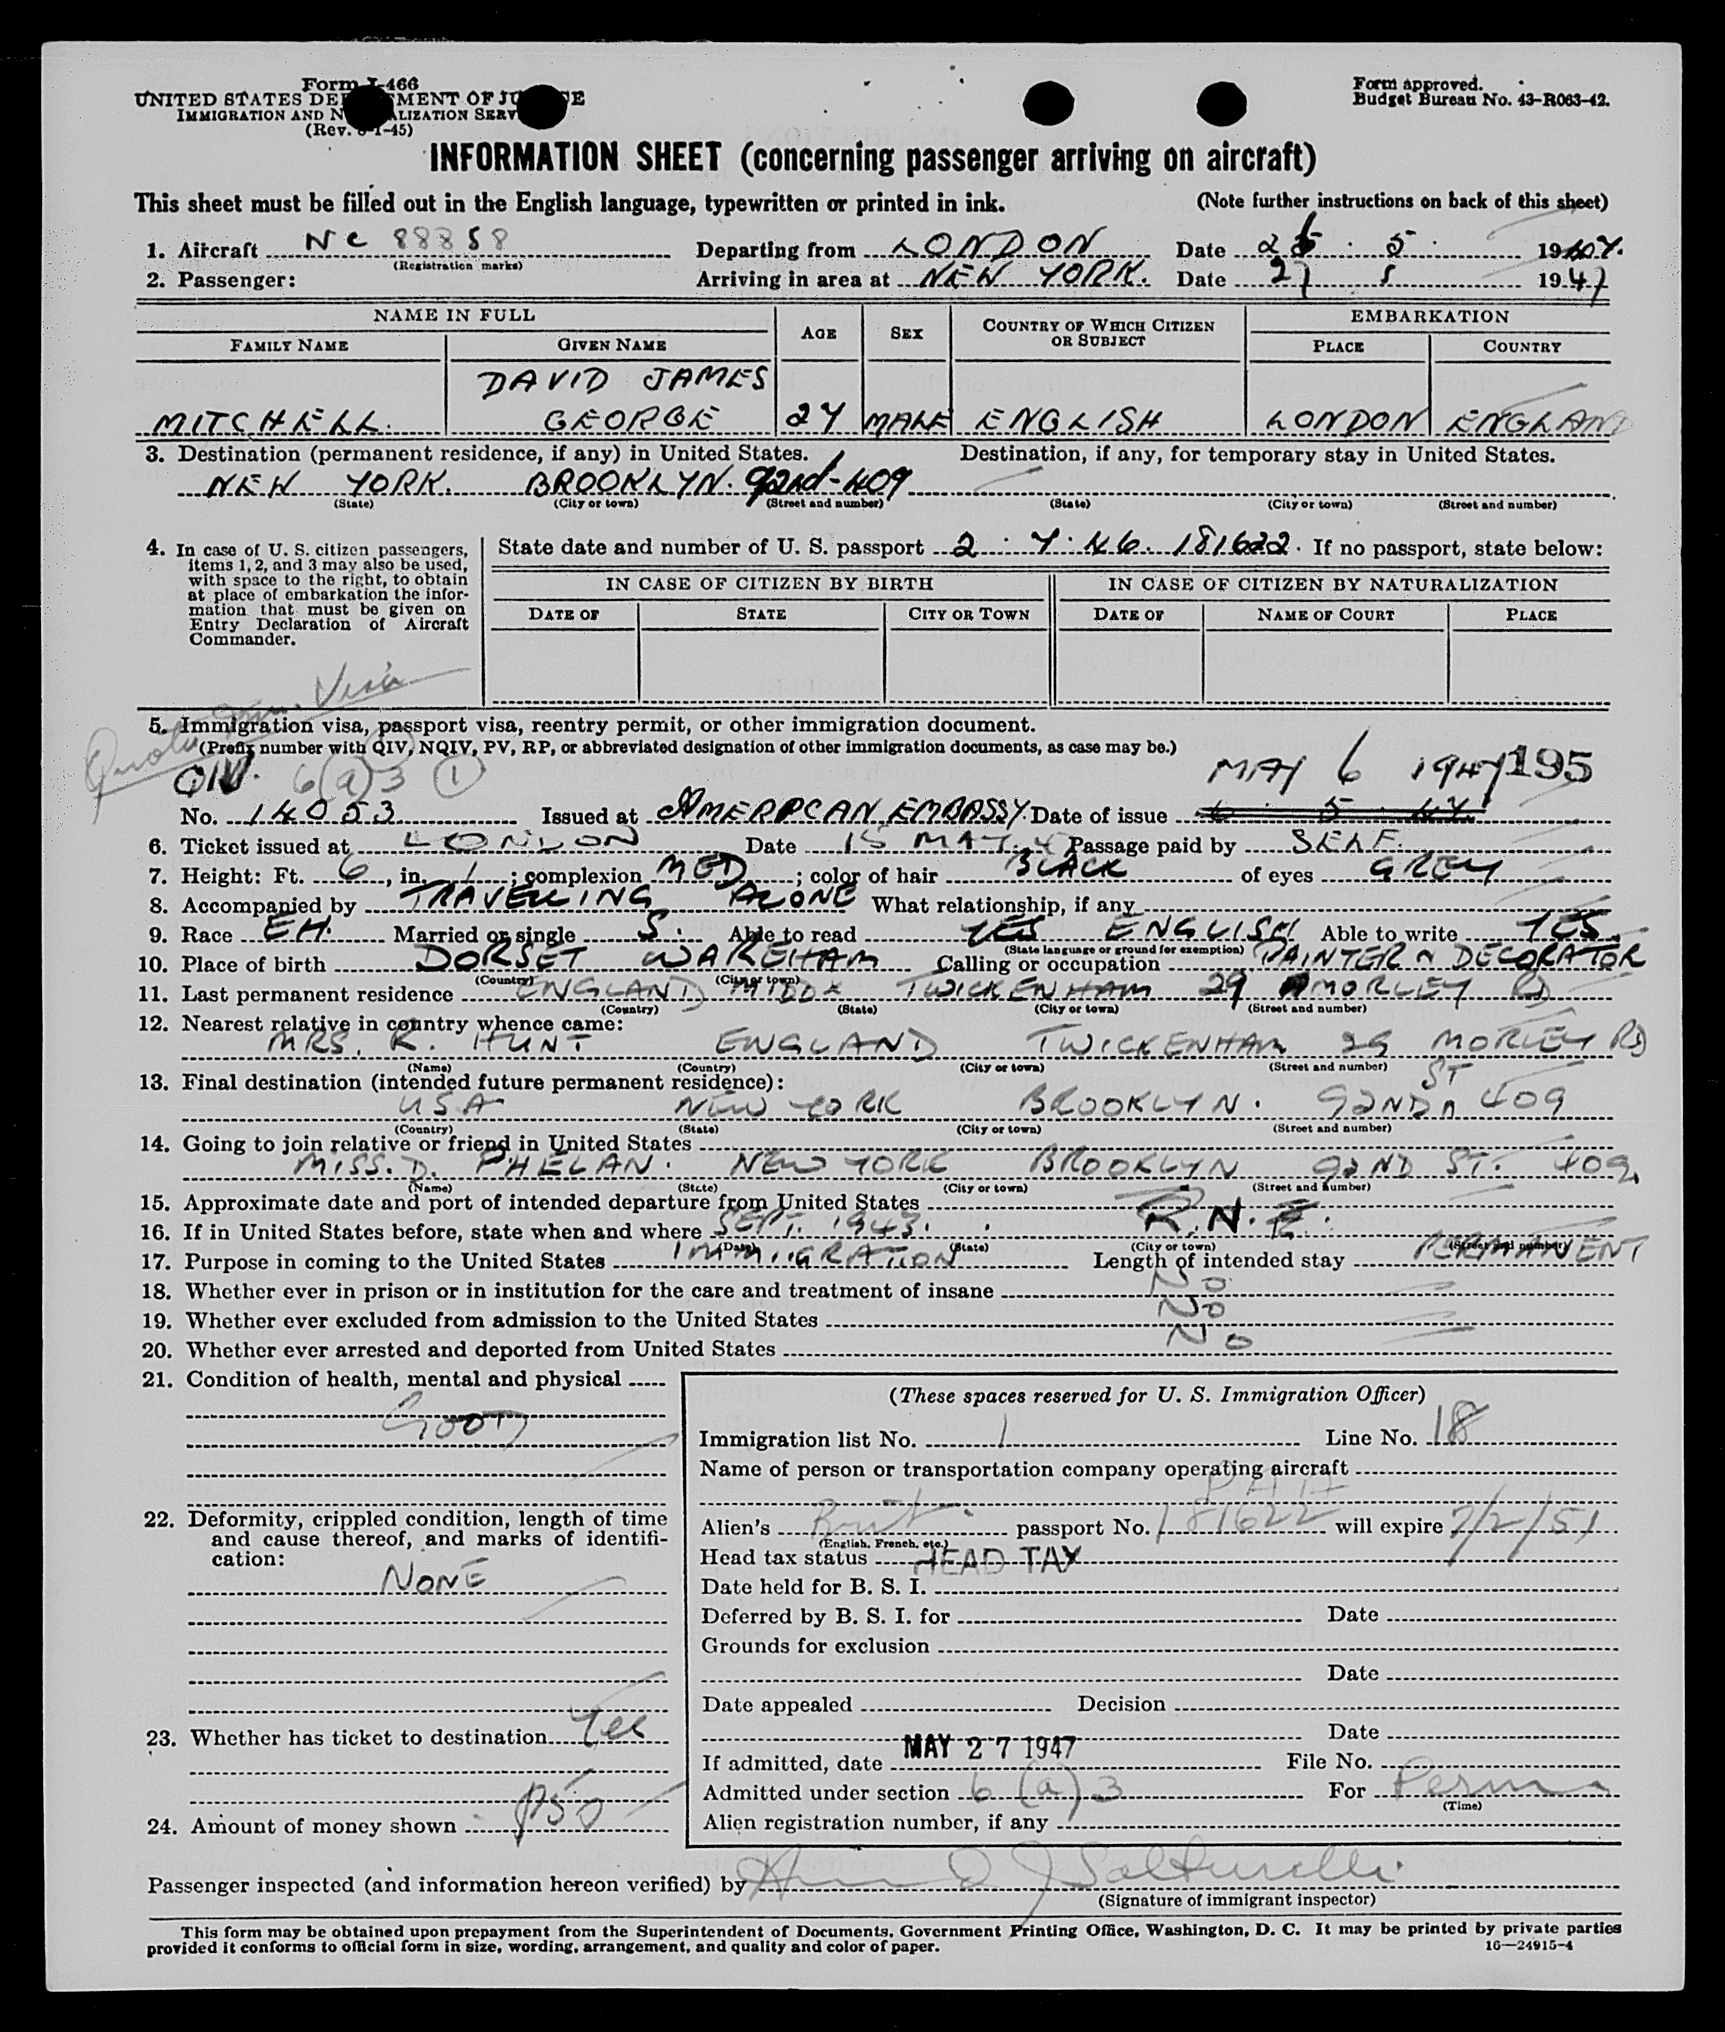 Form I-466
UNITED STATES DEPARTMENT OF JUSTICE
IMMIGRATION AND NATURALIZATION SERVICE
(Rev. 6-1-45)
Form approved.
Budget Bureau No. 43-R063-42.
INFORMATION SHEET (concerning passenger arriving on aircraft)
This sheet must be filled out in the English language, typewritten or printed in ink. (Note further instructions on back of this sheet)
1. Aircraft NC 88858 Departing from LONDON Date 26 . 5 . 1947.
(Registration marks)
2. Passenger: Arriving in area at NEW YORK. Date 27 5 1947
NAME IN FULL AGE SEX COUNTRY OF WHICH CITIZEN OR SUBJECT EMBARKATION
FAMILY NAME GIVEN NAME PLACE COUNTRY
DAVID JAMES
MITCHELL. GEORGE 27 MALE ENGLISH LONDON ENGLAND
3. Destination (permanent residence, if any) in United States. Destination, if any, for temporary stay in United States.
NEW YORK. BROOKLYN. 92nd - 409
(State) (City or town) (Street and number) (State) (City or town) (Street and number)
4. In case of U. S. citizen passengers, items 1, 2, and 3 may also be used, with space to the right, to obtain at place of embarkation the information that must be given on Entry Declaration of Aircraft Commander.
State date and number of U. S. passport 2 . 7 . 46. 181622. If no passport, state below:
IN CASE OF CITIZEN BY BIRTH IN CASE OF CITIZEN BY NATURALIZATION
DATE OF STATE CITY OR TOWN DATE OF NAME OF COURT PLACE
Quota Imm. Visa
5. Immigration visa, passport visa, reentry permit, or other immigration document.
(Prefix number with QIV, NQIV, PV, RP, or abbreviated designation of other immigration documents, as case may be.)
QIV. 6(a)3 1 MAY 6 1947 195
No. 14053 Issued at AMERICAN EMBASSY. Date of issue 6 . 5 . 47.
6. Ticket issued at LONDON Date 15 MAY. 47 Passage paid by SELF.
7. Height: Ft. 6, in. 1; complexion MED; color of hair BLACK of eyes GREY
8. Accompanied by TRAVELLING ALONE What relationship, if any
9. Race EH. Married or single S. Able to read YES ENGLISH Able to write YES.
(State language or ground for exemption)
10. Place of birth DORSET WAREHAM Calling or occupation PAINTER & DECORATOR
(Country) (City or town)
11. Last permanent residence ENGLAND MIDDX TWICKENHAM 29 MORLEY RD
(Country) (State) (City or town) (Street and number)
12. Nearest relative in country whence came:
MRS. R. HUNT ENGLAND TWICKENHAM 29 MORLEY RD
(Name) (Country) (City or town) (Street and number)
13. Final destination (intended future permanent residence):
USA NEW YORK BROOKLYN. 92ND ST 409
(Country) (State) (City or town) (Street and number)
14. Going to join relative or friend in United States
MISS. D. PHELAN. NEW YORK BROOKLYN 92ND ST. 409
(Name) (State) (City or town) (Street and number)
15. Approximate date and port of intended departure from United States
16. If in United States before, state when and where SEPT. 1943. R.N.E.
(Date) (State) (City or town) (Street and number)
17. Purpose in coming to the United States IMMIGRATION Length of intended stay PERMANENT
18. Whether ever in prison or in institution for the care and treatment of insane NO
19. Whether ever excluded from admission to the United States NO
20. Whether ever arrested and deported from United States NO
21. Condition of health, mental and physical
GOOD
22. Deformity, crippled condition, length of time and cause thereof, and marks of identification:
NONE
23. Whether has ticket to destination Yes
24. Amount of money shown $50
(These spaces reserved for U. S. Immigration Officer)
Immigration list No. 1 Line No. 18
Name of person or transportation company operating aircraft
PAA
Alien's Brit. passport No. 181622 will expire 7/2/51
(English, French, etc.)
Head tax status HEAD TAX
Date held for B. S. I.
Deferred by B. S. I. for Date
Grounds for exclusion
Date
Date appealed Decision
Date
If admitted, date MAY 27 1947 File No.
Admitted under section 6(a)3 For Perm
(Time)
Alien registration number, if any
Passenger inspected (and information hereon verified) by
(Signature of immigrant inspector)
This form may be obtained upon prepayment from the Superintendent of Documents, Government Printing Office, Washington, D. C. It may be printed by private parties
provided it conforms to official form in size, wording, arrangement, and quality and color of paper. 16—24915-4